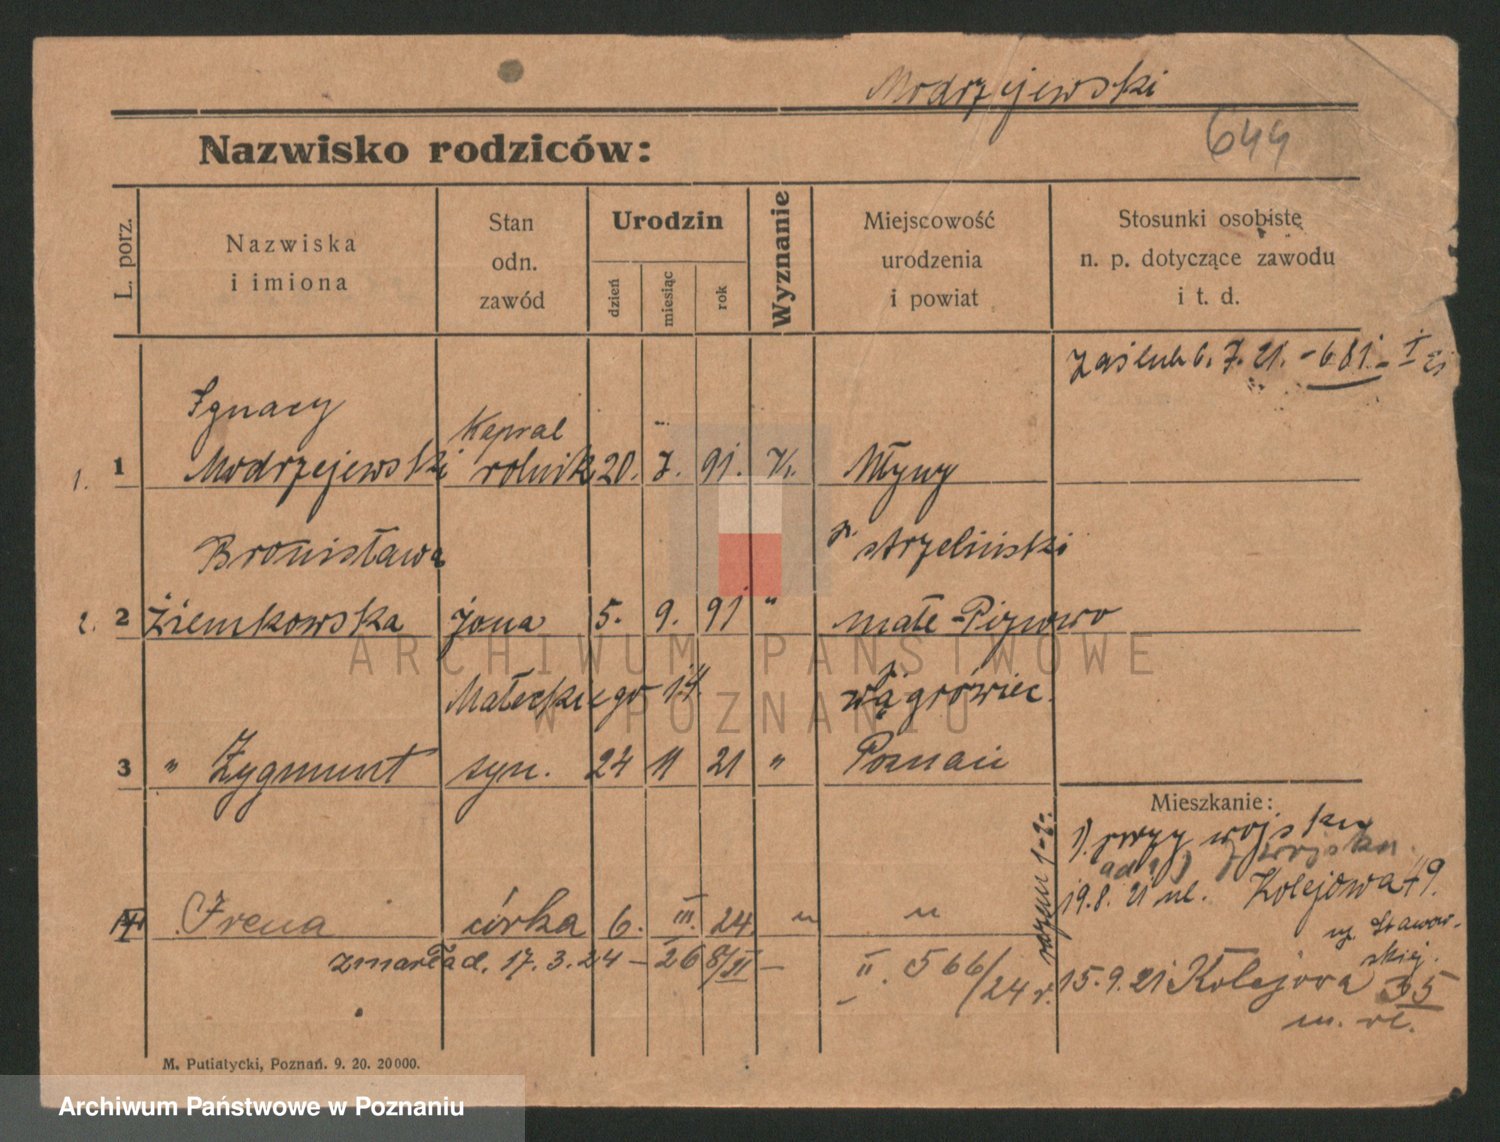 Modrzejewski
644
Nazwisko rodziców:
L. porz.
Nazwiska
i imiona
Stan
odn.
zawód
Urodzin
dzień
miesiąc
rok
Wyznanie
Miejscowość
urodzenia
i powiat
Stosunki osobiste
n. p. dotyczące zawodu
i t. d.
Zaślub 6. 7. 21. - 681. -
Ignacy
Kapral
1. 1 Modrzejewski rolnik 20. 7. 91. Młyny
Bronisława strzeliński
2. 2 Ziemkowska żona 5. 9. 91 " małe-Pizowo
Małeckiego 14. wągrówiec.
3 " Zygmunt syn. 24 11 21 " Poznań
Mieszkanie:
1). przy wojsku
razem 1-2.
19.8.21 Kolejowa 49.
Irena córka 6. III. 24 " "
zmarła d. 17. 3. 24 - 268/II - II. 566/24 r.
15.9.21 Kolejowa 35
M. Putiatycki, Poznań. 9. 20. 20000.
ARCHIWUM PAŃSTWOWE
W POZNANIU
Archiwum Państwowe w Poznaniu